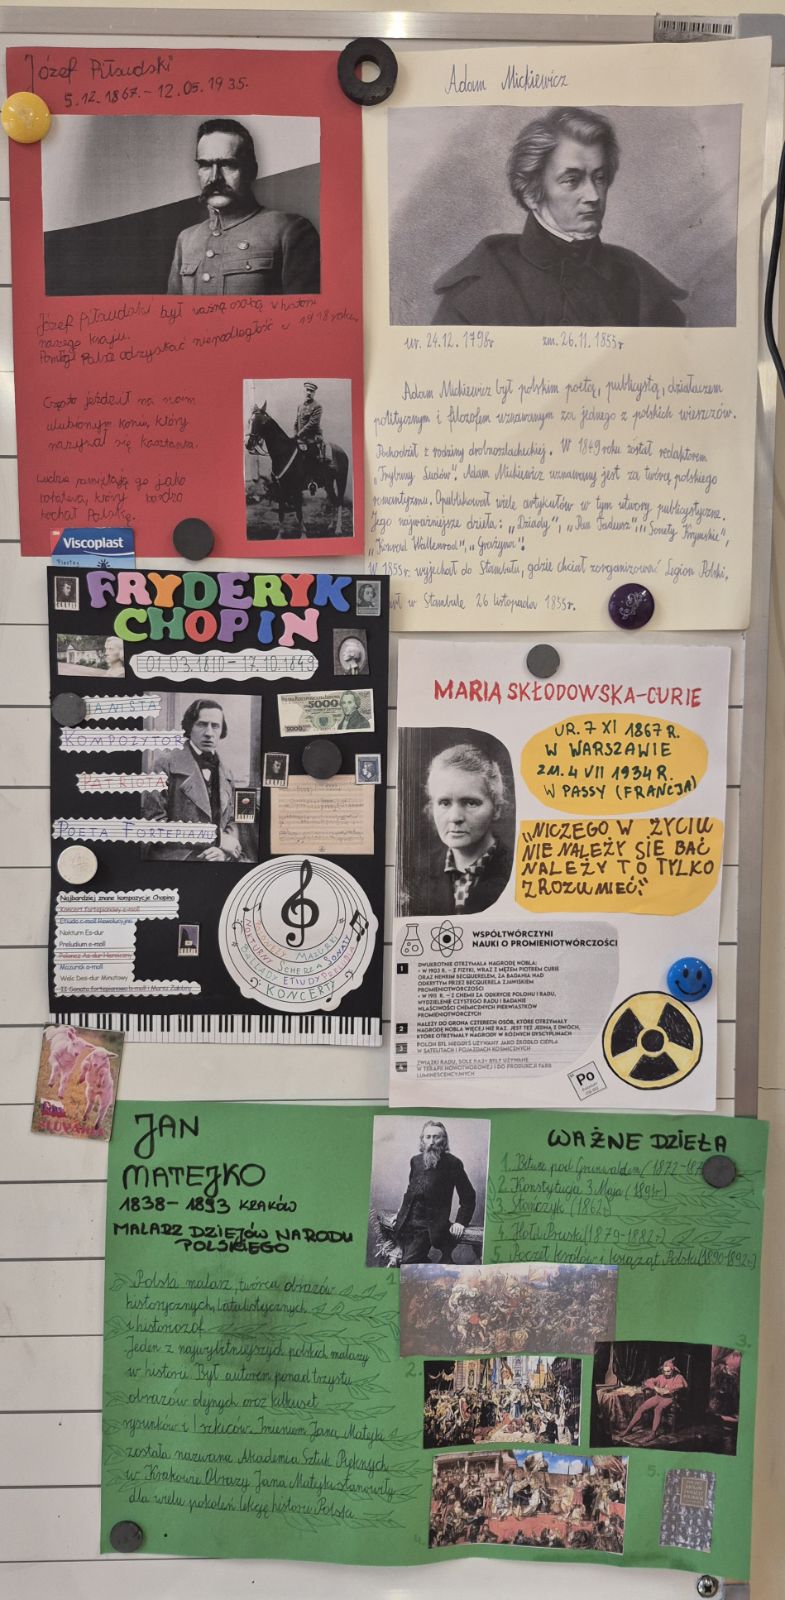 Józef Piłsudski
5.12.1867.- 12.05.1935.
Józef Piłsudski był ważną osobą w historii
naszego kraju.
Pomógł Polsce odzyskać niepodległość w 1918 roku.
Często jeździł na swoim
ulubionym koniu, który
nazywał się kasztanka.
Ludzie pamiętają go jako
który bardzo
kochał Polskę.
Adam Mickiewicz
ur. 24.12.1798r zm. 26.11.1855r
Adam Mickiewicz był polskim poetą, publicystą, działaczem
politycznym i filozofem uznawanym za jednego z polskich wieszczów.
Pochodził z rodziny drobnoszlacheckiej. W 1849 roku został redaktorem
„Trybuny Ludów". Adam Mickiewicz uznawany jest za twórcę polskiego
romantyzmu. Opublikował wiele artykułów w tym utwory publicystyczne.
Jego najważniejsze dzieła: „Dziady", „Pan Tadeusz", „Sonety Krymskie",
„Konrad Wallenrod", „Grażyna".
W 1855r. wyjechał do Stambułu, gdzie chciał zorganizować Legion Polski.
w Stambule 26 listopada 1855r.
Viscoplast
FRYDERYK
CHOPIN
01.03.1810-17.10.1849
PIANISTA
KOMPOZYTOR
PATRIOTA
POETA FORTEPIANU
5000
Najbardziej znane kompozycje Chopina
Koncert fortepianowy e-moll
Etiuda c-moll Rewolucyjna
Nokturn Es-dur
Preludium e-moll
Polonez As-dur Heroiczny
Mazurek a-moll
Walc Des-dur Minutowy
II Sonata fortepianowa b-moll i Marsz Żałobny
MAZURKI
NOKTURNY SCHERZA SONATY
BALLADY ETIUDY PRELUDIA
KONCERTY
MARIA SKŁODOWSKA-CURIE
UR. 7 XI 1867 R.
W WARSZAWIE
ZM. 4 VII 1934 R.
W PASSY (FRANCJA)
„NICZEGO W ŻYCIU
NIE NALEŻY SIĘ BAĆ
NALEŻY TO TYLKO
ZROZUMIEĆ."
WSPÓŁTWÓRCZYNI
NAUKI O PROMIENIOTWÓRCZOŚCI
1 DWUKROTNIE OTRZYMAŁA NAGRODĘ NOBLA:
- W 1903 R. - Z FIZYKI, WRAZ Z MĘŻEM PIOTREM CURIE
ORAZ HENRIM BECQUERELEM, ZA BADANIA NAD
ODKRYTYM PRZEZ BECQUERELA ZJAWISKIEM
PROMIENIOTWÓRCZOŚCI
- W 1911 R. - Z CHEMII ZA ODKRYCIE POLONU I RADU,
WYDZIELENIE CZYSTEGO RADU I BADANIE
WŁAŚCIWOŚCI CHEMICZNYCH PIERWIASTKÓW
PROMIENIOTWÓRCZYCH
2 NALEŻY DO GRONA CZTERECH OSÓB, KTÓRE OTRZYMAŁY
NAGRODĘ NOBLA WIĘCEJ NIŻ RAZ. JEST TEŻ JEDNĄ Z DWÓCH,
KTÓRE OTRZYMAŁY NAGRODY W RÓŻNYCH DYSCYPLINACH
3 POLON BYŁ NIEGDYŚ UŻYWANY JAKO ŹRÓDŁO CIEPŁA
W SATELITACH I POJAZDACH KOSMICZNYCH
4 ZWIĄZKI RADU, SOLE RADU BYŁY UŻYWANE
W TERAPII NOWOTWOROWEJ I DO PRODUKCJI FARB
LUMINESCENCYJNYCH
Po
JAN
MATEJKO
1838-1893 KRAKÓW
MALARZ DZIEJÓW NARODU
POLSKIEGO
Polski malarz, twórca obrazów
historycznych, batalistycznych
i historiozof.
Jeden z najwybitniejszych polskich malarzy
w historii. Był autorem ponad trzystu
obrazów olejnych oraz kilkuset
rysunków i szkiców. Imieniem Jana Matejki
została nazwana Akademia Sztuk Pięknych
w Krakowie. Obrazy Jana Matejki stanowiły
dla wielu pokoleń lekcję historii Polski.
WAŻNE DZIEŁA
1. Bitwa pod Grunwaldem (1872-
2. Konstytucja 3 Maja (1891r)
3. Stańczyk (1862r)
4. Hołd Pruski (1879-1882r.)
5. Poczet królów i książąt Polski (1890-1892r.)
1.
2.
3.
4.
5.